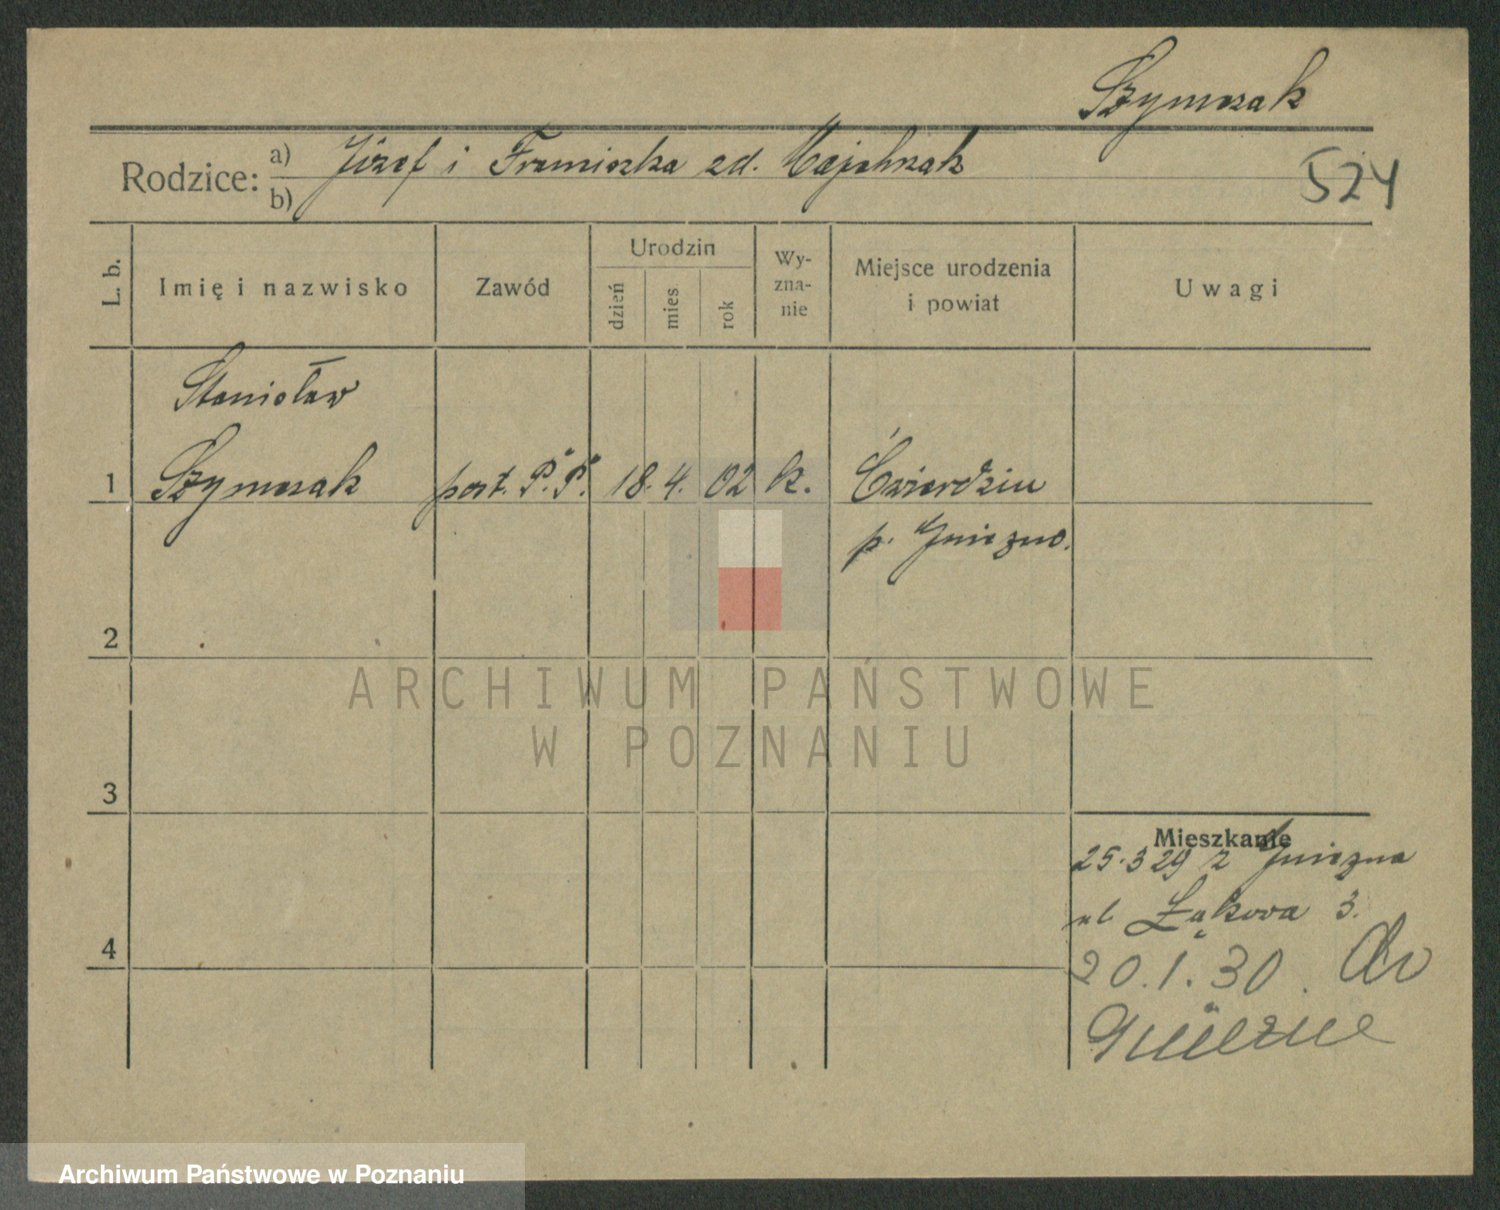 Szymczak
Rodzice: a) Józef i Franciszka zd. Majchrzak
b)
524
L. b.
Imię i nazwisko
Zawód
Urodzin
dzień
mies
rok
Wy-
zna-
nie
Miejsce urodzenia
i powiat
Uwagi
Stanisław
1 Szymczak post. P.P. 18. 4. 02 k.
p. Gniezno.
2
ARCHIWUM PAŃSTWOWE
W POZNANIU
3
Mieszkanie
25.3 29 z Gniezna
ul Łąkowa 3.
4
20.1.30. do
Gniezna
Archiwum Państwowe w Poznaniu